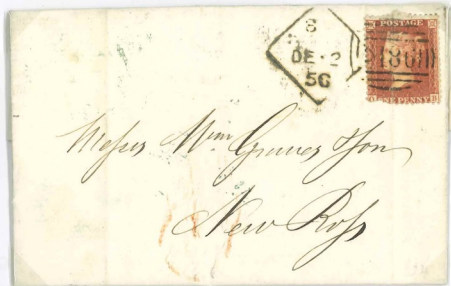 S
DE·2
56
POSTAGE
186
ONE PENNY
Messrs Wm Graves & Son
New Ross